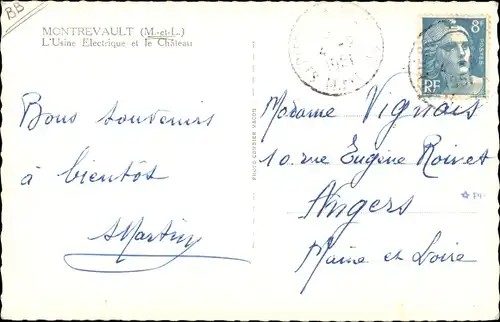 BB
MONTREVAULT (M.-et-L.)
L'Usine Electrique et le Château
8F
POSTES
RF
1951
1951
Bons souvenirs
à bientôt
Martin
PHOTO COMBIER MACON
Madame Vignais
10. rue Eugène Roinet
Angers
Maine et Loire